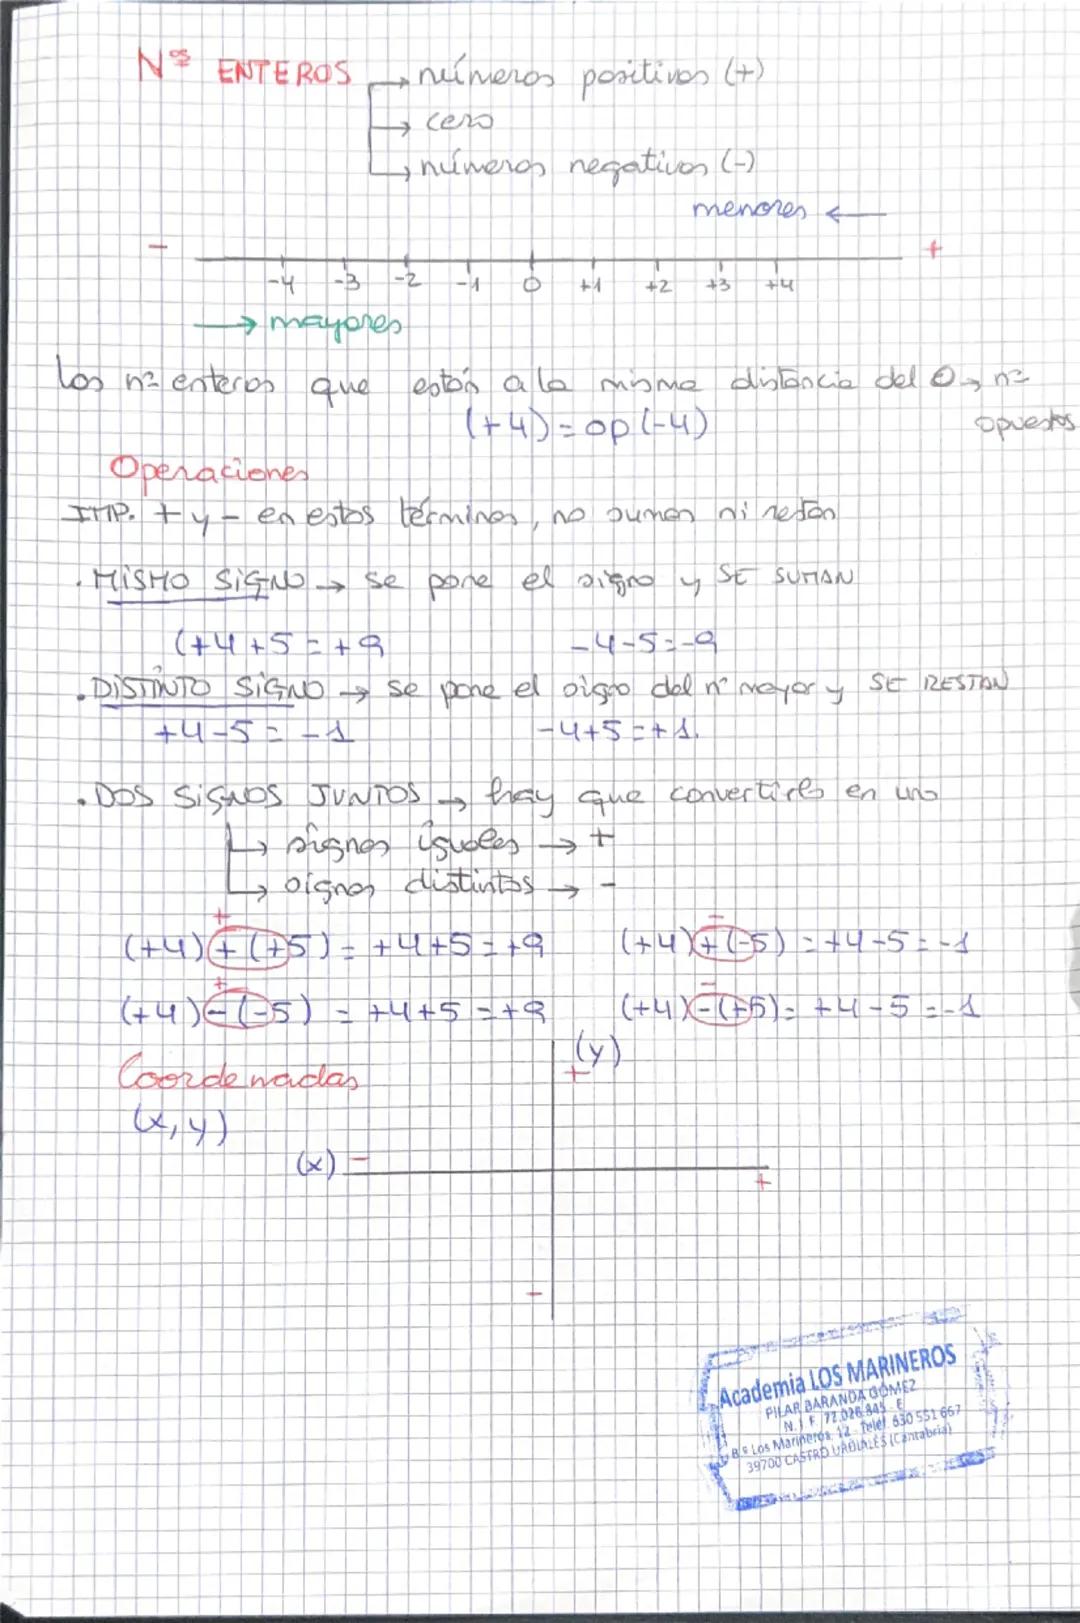 Nºs ENTEROS → números positivos (+)
→ cero
→ números negativos (-)
menores ←
- +
-4 -3 -2 -1 0 +1 +2 +3 +4
→ mayores
Los nº enteros que están a la misma distancia del 0 → nº
opuestos
(+4) = op (-4)
Operaciones
IMP. + y - en estos términos, no suman ni restan
. MISMO SIGNO → se pone el signo y SE SUMAN
(+4 +5 = +9 -4-5=-9
. DISTINTO SIGNO → se pone el signo del nº mayor y SE RESTAN
+4-5 = -1 -4+5=+1.
. DOS SIGNOS JUNTOS → hay que convertirlos en uno
→ signos iguales → +
→ signos distintos → -
+ -
(+4)+(+5) = +4+5=+9 (+4)+(-5) = +4-5=-1
+ -
(+4)-(-5) = +4+5=+9 (+4)-(+5)= +4-5=-1
Coordenadas (y)
+
(x,y)
(x) - +
-
Academia LOS MARINEROS
PILAR BARANDA GÓMEZ
N. I. F. 72.026.845 - E
Bº Los Marineros, 12 - Telef. 630 551 667
39700 CASTRO URDIALES (Cantabria)